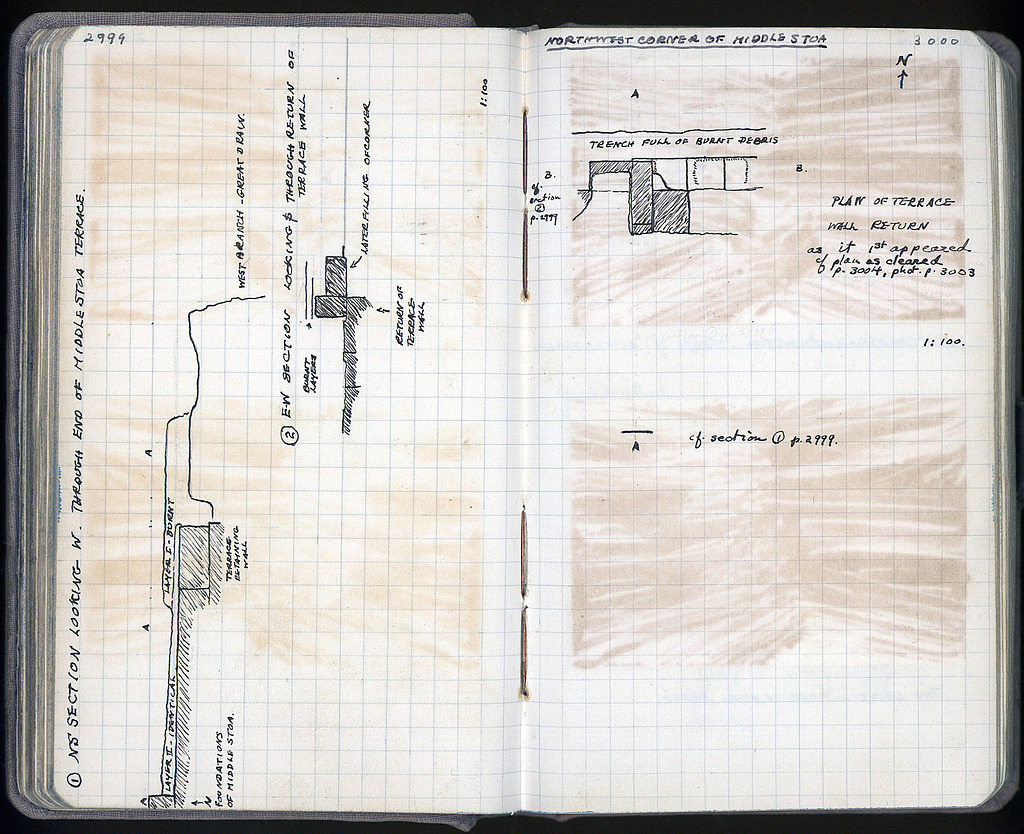 2999
① NS SECTION LOOKING W. THROUGH END OF MIDDLE STOA TERRACE.
A
LAYER II - IDENTICAL
A
LAYER I - BURNT
A
N
FOUNDATIONS
OF MIDDLE STOA.
TERRACE
RETAINING
WALL
WEST BRANCH - GREAT DRAIN.
② E-W SECTION LOOKING S THROUGH RETURN OF
TERRACE WALL
BURNT
LAYERS
LATER FILLING OF CORNER
RETURN OF
TERRACE
WALL
1:100
NORTHWEST CORNER OF MIDDLE STOA
3000
N
A
TRENCH FULL OF BURNT DEBRIS
B.
cf.
section
②
p.2999
B.
PLAN OF TERRACE
WALL RETURN
as it 1st appeared
cf plan as cleared
p. 3004, phot. p. 3003
1:100.
A
cf. section ① p.2999.